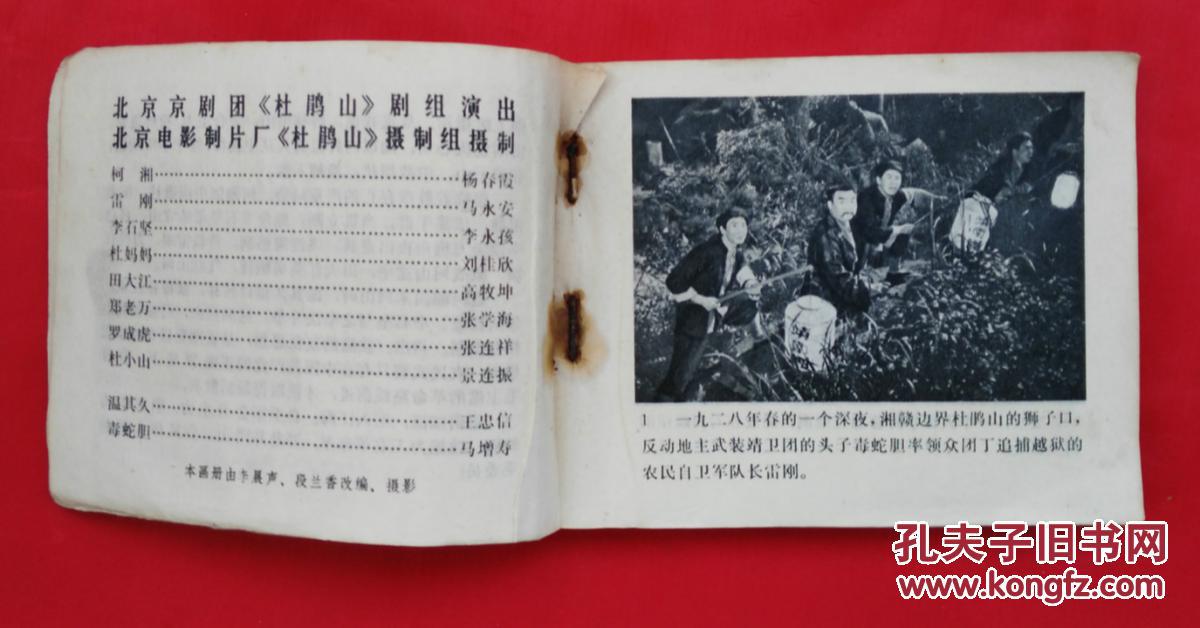 北京京剧团《杜鹃山》剧组演出
北京电影制片厂《杜鹃山》摄制组摄制
柯湘……杨春霞
雷刚……马永安
李石坚……李永孩
杜妈妈……刘桂欣
田大江……高牧坤
郑老万……张学海
罗成虎……张连祥
杜小山……景连振
温其久……王忠信
毒蛇胆……马增寿
本画册由李晨声、段兰香改编、摄影
靖
1 一九二八年春的一个深夜，湘赣边界杜鹃山的狮子口，
反动地主武装靖卫团的头子毒蛇胆率领众团丁追捕越狱的
农民自卫军队长雷刚。
孔夫子旧书网
www.kongfz.com